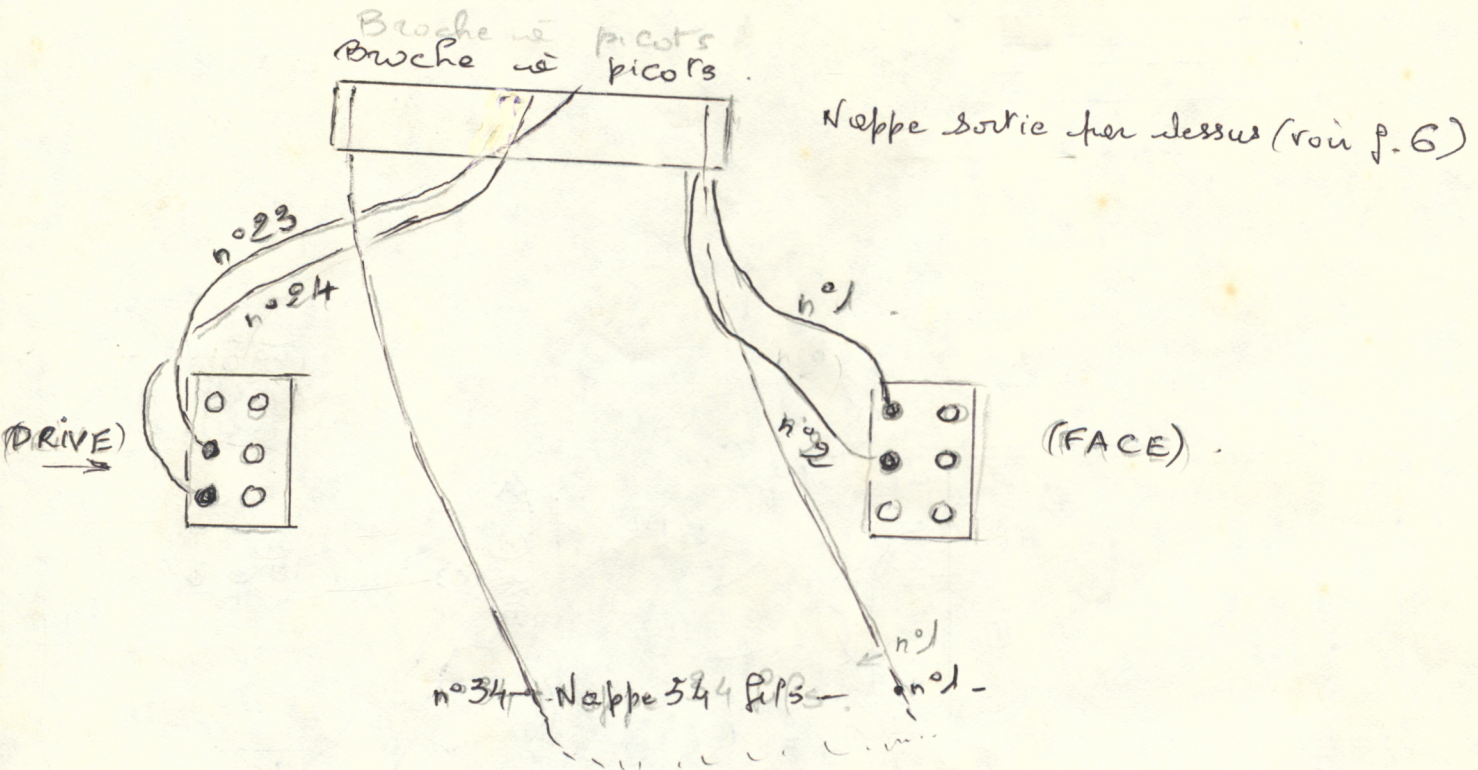 Broche à picots
Broche à picots.
Nappe sortie par dessus (voir f. 6)
n°23
n°24
n°1
n°2
(DRIVE)
(FACE).
n°1
n°34 - Nappe 34 fils - n°1 -